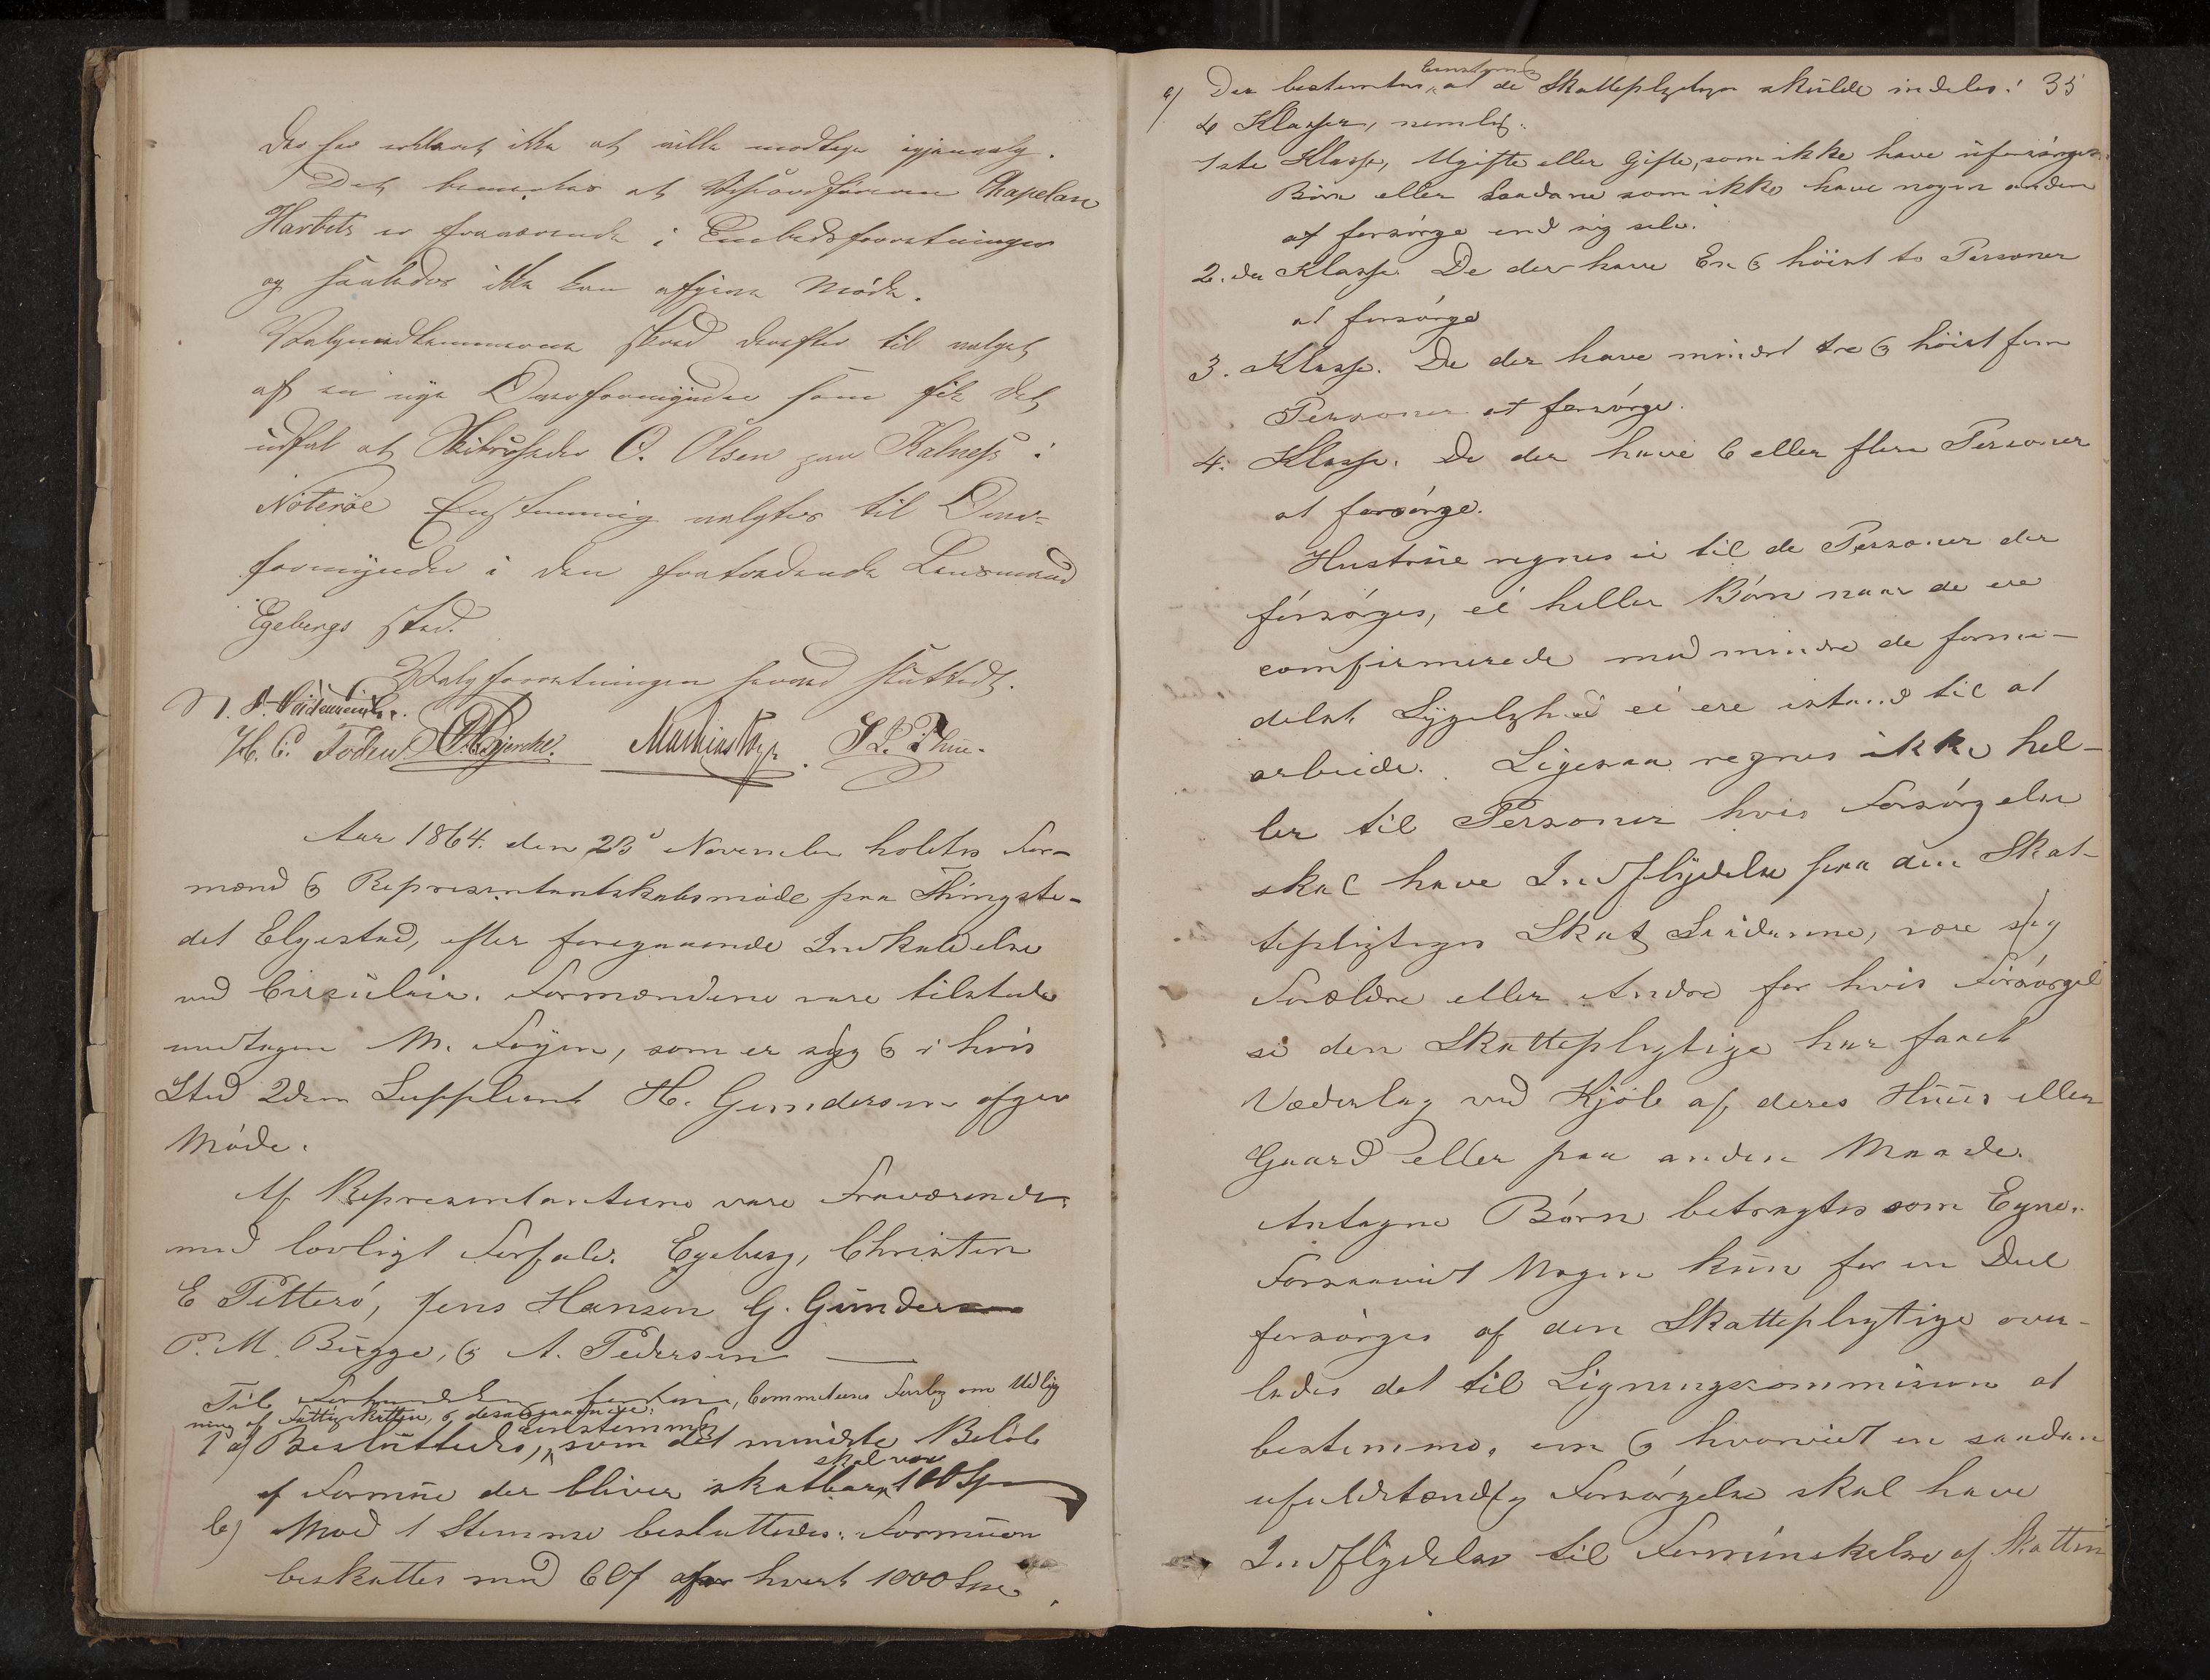 der har erklæret ikke at ville modtage igjenvalg.
Det bemærkes at Viceordføreren Chapelan
Hartvig er fraværende i Embedsforretninger
og saaledes ikke kan afgive Møde.
Valgmedlemmerne skred derefter til valget
af en nye Overformynder som fik det
udfal at Skibsreder O. Olsen paa Kalnæss i
Nøterøe Enstemmig valgtes til Over-
formynder i den fratrædende Lensmand
Egebergs sted.
Valgforretningen hermed sluttedt.
H. C. Foden Bjercke. Mathias S. L. Thue.
Aar 1864. den 23d November holdtes For-
mænd & Representantskabsmøde paa Thingste-
det Elgestad, efter foregaaende Indkaldelse
ved Circulair. Formændene vare tilstede
undtagen M. Føyen, som er syg & i hvis
Sted 2den Suppleant H. Gundersen afgav
Møde.
Af Representanterne vare Fraværende
med lovligt Forfald. Egeberg, Christen
E Pitterö, Jens Hansen G. Gunder
P. M. Bugge, & A. Pedersen
Til Committeens Forslag om Udlig
ning af Fattigskatten, & desangaaende:
1 a) Besluttedes, eenstemmig som det mindste Beløb
af Formue der bliver skatbar, skal være 100 Spd
b) Mod 1 Stemme besluttedes: Formuen
beskattes med 60 for hvert 1000 Spd.
35
c) Der bestemtes eenstemmig at de Skattepligtige skulde indeles i
4 Klasser, nemlig:
1ste Klasse, Ugifte eller Gifte, som ikke have uforsørgede
Børn eller saadane som ikke have nogen anden
at forsørge end sig selv.
2. den Klasse De der have En & høist to Personer
at forsørge
3. Klasse. De der have mindst tre & høist fem
Personer at forsørge.
4. Klasse. De der have 6 eller flere Personer
at forsørge.
Hustrue regnes ei til de Personer der
forsørges, ei heller Børn naar de ere
confirmerede med mindre de forme-
delst Sygelighed ei ere istand til at
arbeide. Ligesaa regnes ikke hel-
ler til Personer hvis Forsørgelse
skal have Indflydelse paa den Skat-
tepligtiges Skat Saadanne, være sig
Forældre eller Andre for hvis Forsørgel
se den Skattepligtige har faaet
Vederlag ved Kjøb af deres Huus eller
Gaard eller paa anden Maade.
Antagne Børn betragtes som Egne.
Forsaavidt Nogen kun for en Deel
forsørges af den Skattepligtige over-
lades det til Ligningscommision at
bestemme, om & hvorvidt en saadan
ufuldstændig Forsørgelse skal have
Indflydelse til Forminskelse af Skatten